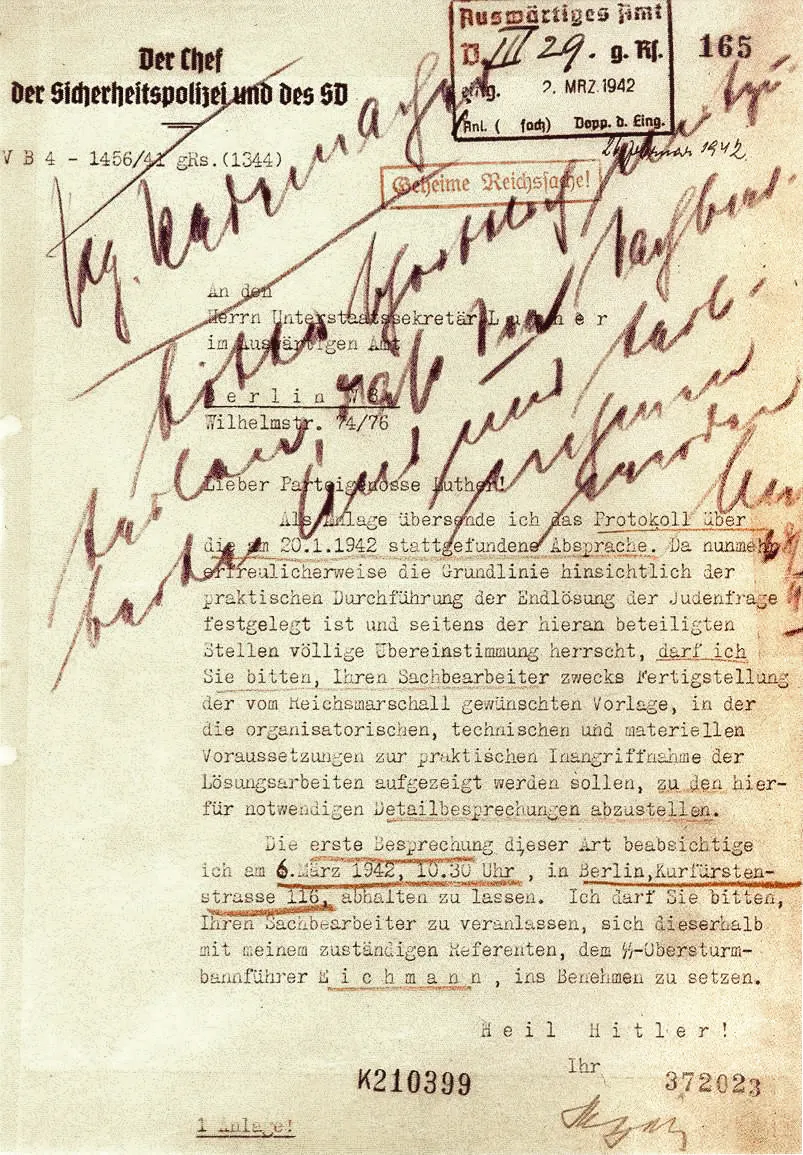 Der Chef
der Sicherheitspolizei und des SD
V B 4 - 1456/41 gRs.(1344)
Auswärtiges Amt
D. III 29. g. Rs.
eing. 2. MRZ. 1942
Anl. ( fach) Dopp. d. Eing.
165
26. Februar 1942.
Geheime Reichssache!
An den
Herrn Unterstaatssekretär L u t h e r
im Auswärtigen Amt
B e r l i n W 8
Wilhelmstr. 74/76
Lieber Parteigenosse Luther!
Als Anlage übersende ich das Protokoll über
die am 20.1.1942 stattgefundene Absprache. Da nunmehr
erfreulicherweise die Grundlinie hinsichtlich der
praktischen Durchführung der Endlösung der Judenfrage
festgelegt ist und seitens der hieran beteiligten
Stellen völlige Übereinstimmung herrscht, darf ich
Sie bitten, Ihren Sachbearbeiter zwecks Fertigstellung
der vom Reichsmarschall gewünschten Vorlage, in der
die organisatorischen, technischen und materiellen
Voraussetzungen zur praktischen Inangriffnahme der
Lösungsarbeiten aufgezeigt werden sollen, zu den hier-
für notwendigen Detailbesprechungen abzustellen.
Die erste Besprechung dieser Art beabsichtige
ich am 6.März 1942, 10.30 Uhr , in Berlin,Kurfürsten-
strasse 116, abhalten zu lassen. Ich darf Sie bitten,
Ihren Sachbearbeiter zu veranlassen, sich dieserhalb
mit meinem zuständigen Referenten, dem SS-Obersturm-
bannführer E i c h m a n n , ins Benehmen zu setzen.
H e i l H i t l e r !
Ihr
K210399
372023
1 Anlage!